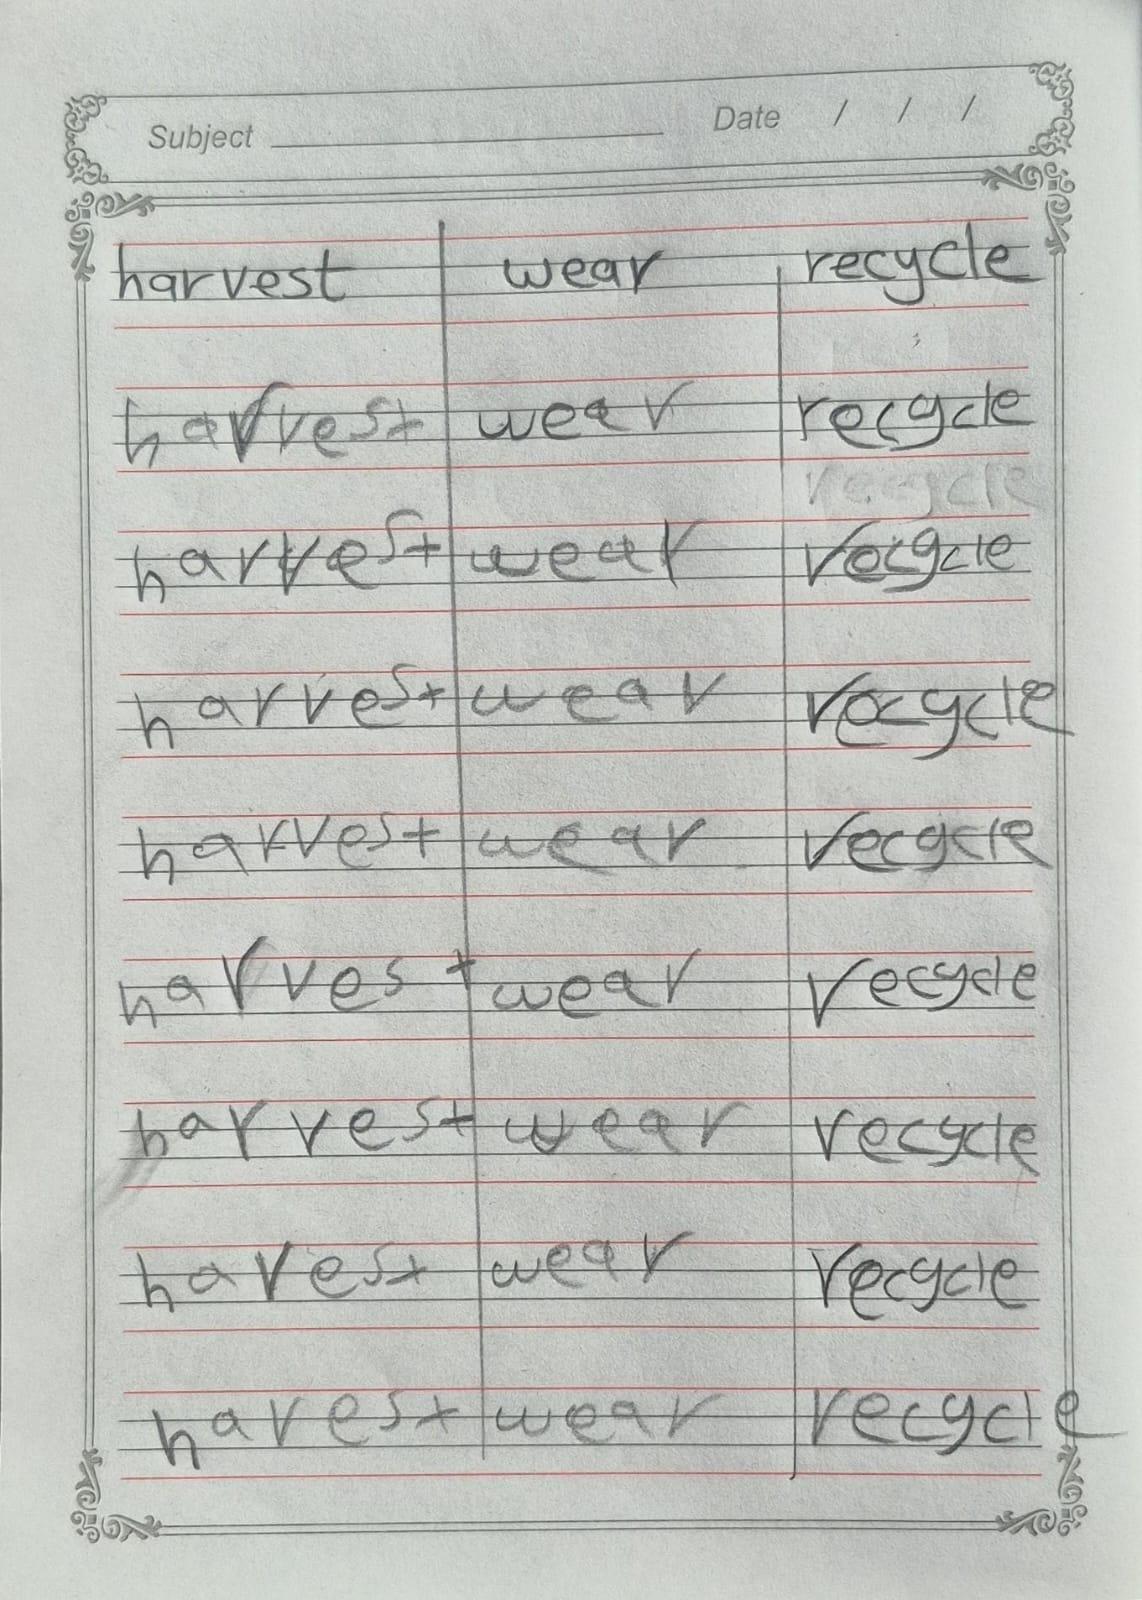 Subject Date / / /
harvest wear recycle
harvest wear recycle
recycle
harvest wear recycle
harvest wear recycle
harvest wear recycle
harvest wear recycle
harvest wear recycle
havest wear recycle
havest wear recycle